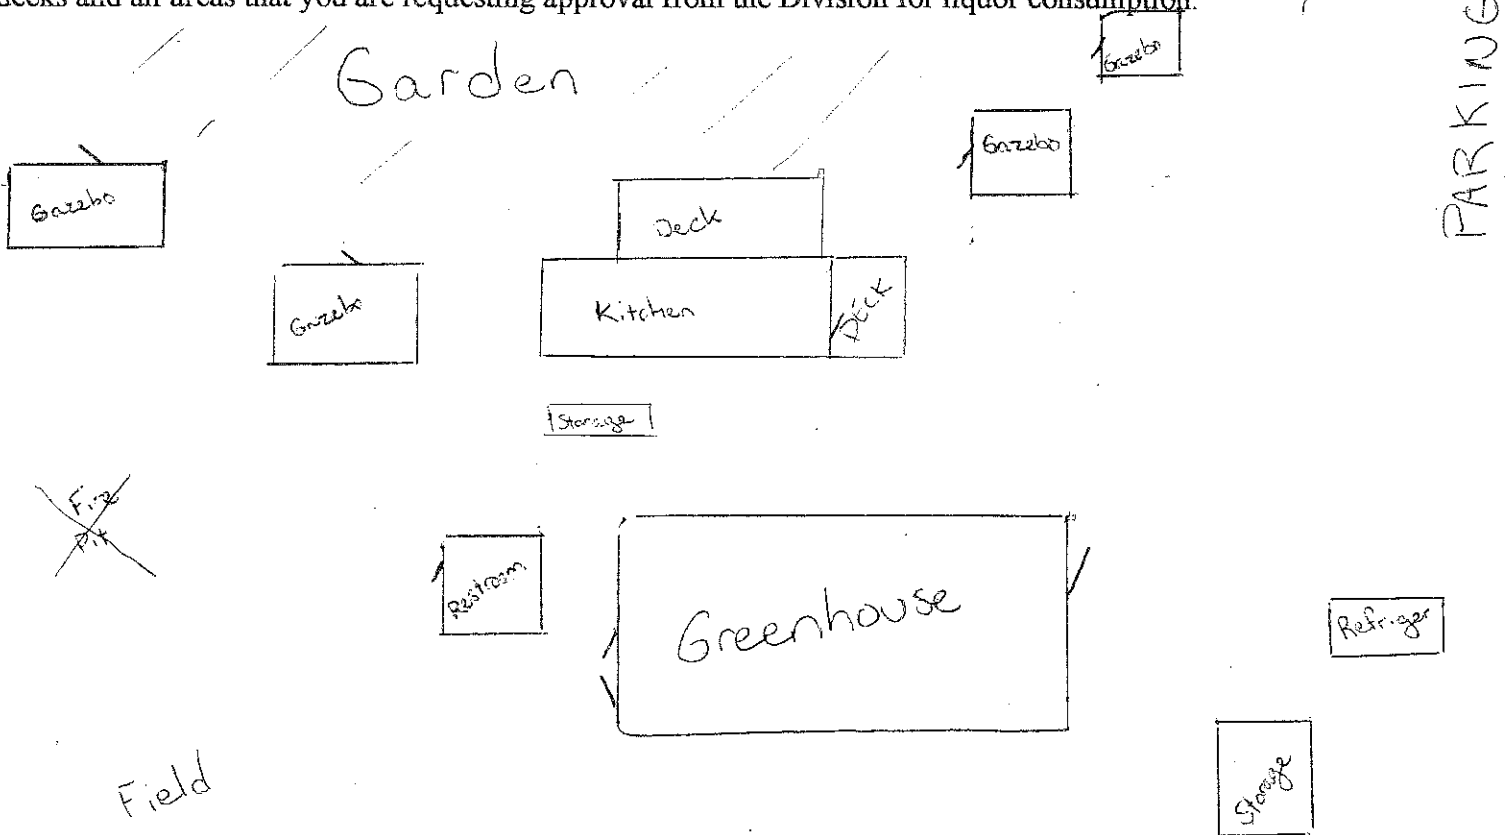 decks and all areas that you are requesting approval from the Division for liquor consumption.
Garden
Gazebo
PARKING
Gazebo
Gazebo
Deck
Gazebo
Kitchen
DECK
Storage
Fire
Pit
Restroom
Greenhouse
Refriger
Storage
Field